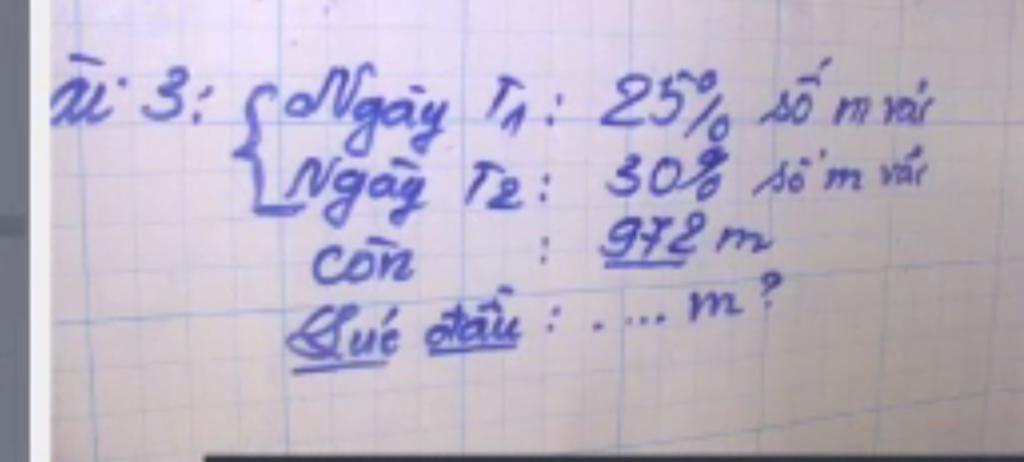 ài 3: Ngày T1: 25% số m vải
Ngày T2: 30% số m vải
còn : 972 m
Lúc đầu : . .... m ?